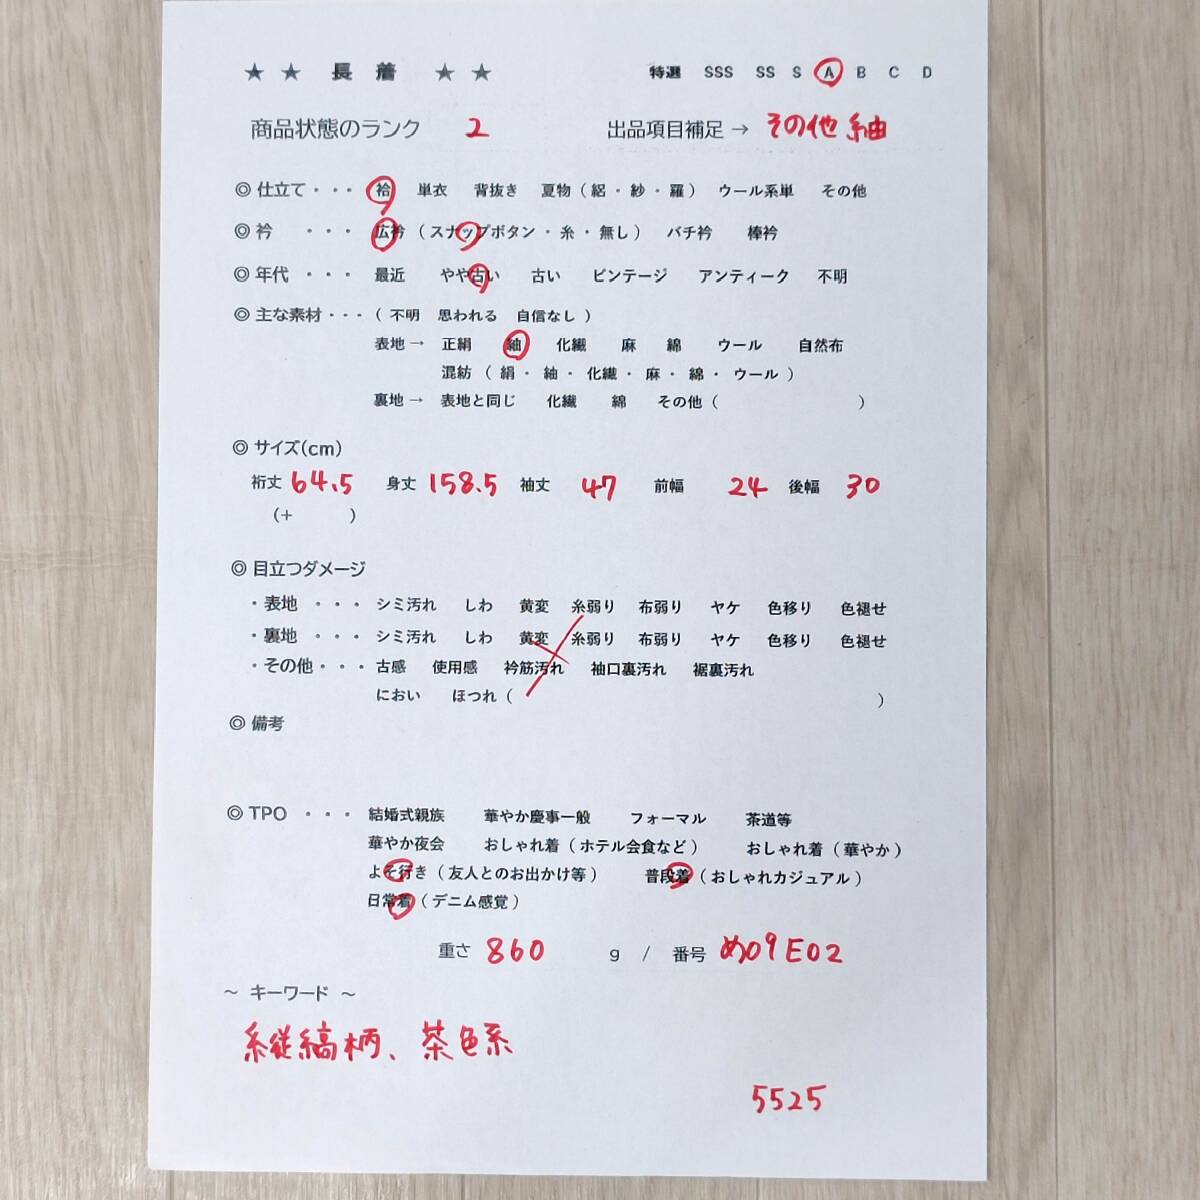 ★ ★ 長 着 ★ ★ 特選 SSS SS S A B C D
商品状態のランク 2 出品項目補足 → その他 紬
◎ 仕立て ・・・ 袷 単衣 背抜き 夏物 ( 絽 ・ 紗 ・ 羅 ) ウール系単 その他
◎ 衿 ・・・ 広衿 ( スナップボタン ・ 糸 ・ 無し ) バチ衿 棒衿
◎ 年代 ・・・ 最近 やや古い 古い ビンテージ アンティーク 不明
◎ 主な素材 ・・・ ( 不明 思われる 自信なし )
表地 → 正絹 紬 化繊 麻 綿 ウール 自然布
混紡 ( 絹 ・ 紬 ・ 化繊 ・ 麻 ・ 綿 ・ ウール )
裏地 → 表地と同じ 化繊 綿 その他 ( )
◎ サイズ(cm)
裄丈 64.5 身丈 158.5 袖丈 47 前幅 24 後幅 30
(+ )
◎ 目立つダメージ
・表地 ・・・ シミ汚れ しわ 黄変 糸弱り 布弱り ヤケ 色移り 色褪せ
・裏地 ・・・ シミ汚れ しわ 黄変 糸弱り 布弱り ヤケ 色移り 色褪せ
・その他 ・・・ 古感 使用感 衿筋汚れ 袖口裏汚れ 裾裏汚れ
におい ほつれ ( )
◎ 備考
◎ TPO ・・・ 結婚式親族 華やか慶事一般 フォーマル 茶道等
華やか夜会 おしゃれ着 ( ホテル会食など ) おしゃれ着 ( 華やか )
よそ行き ( 友人とのお出かけ等 ) 普段着 ( おしゃれカジュアル )
日常着 ( デニム感覚 )
重さ 860 g / 番号 め09E02
～ キーワード ～
縦縞柄、茶色系
5525